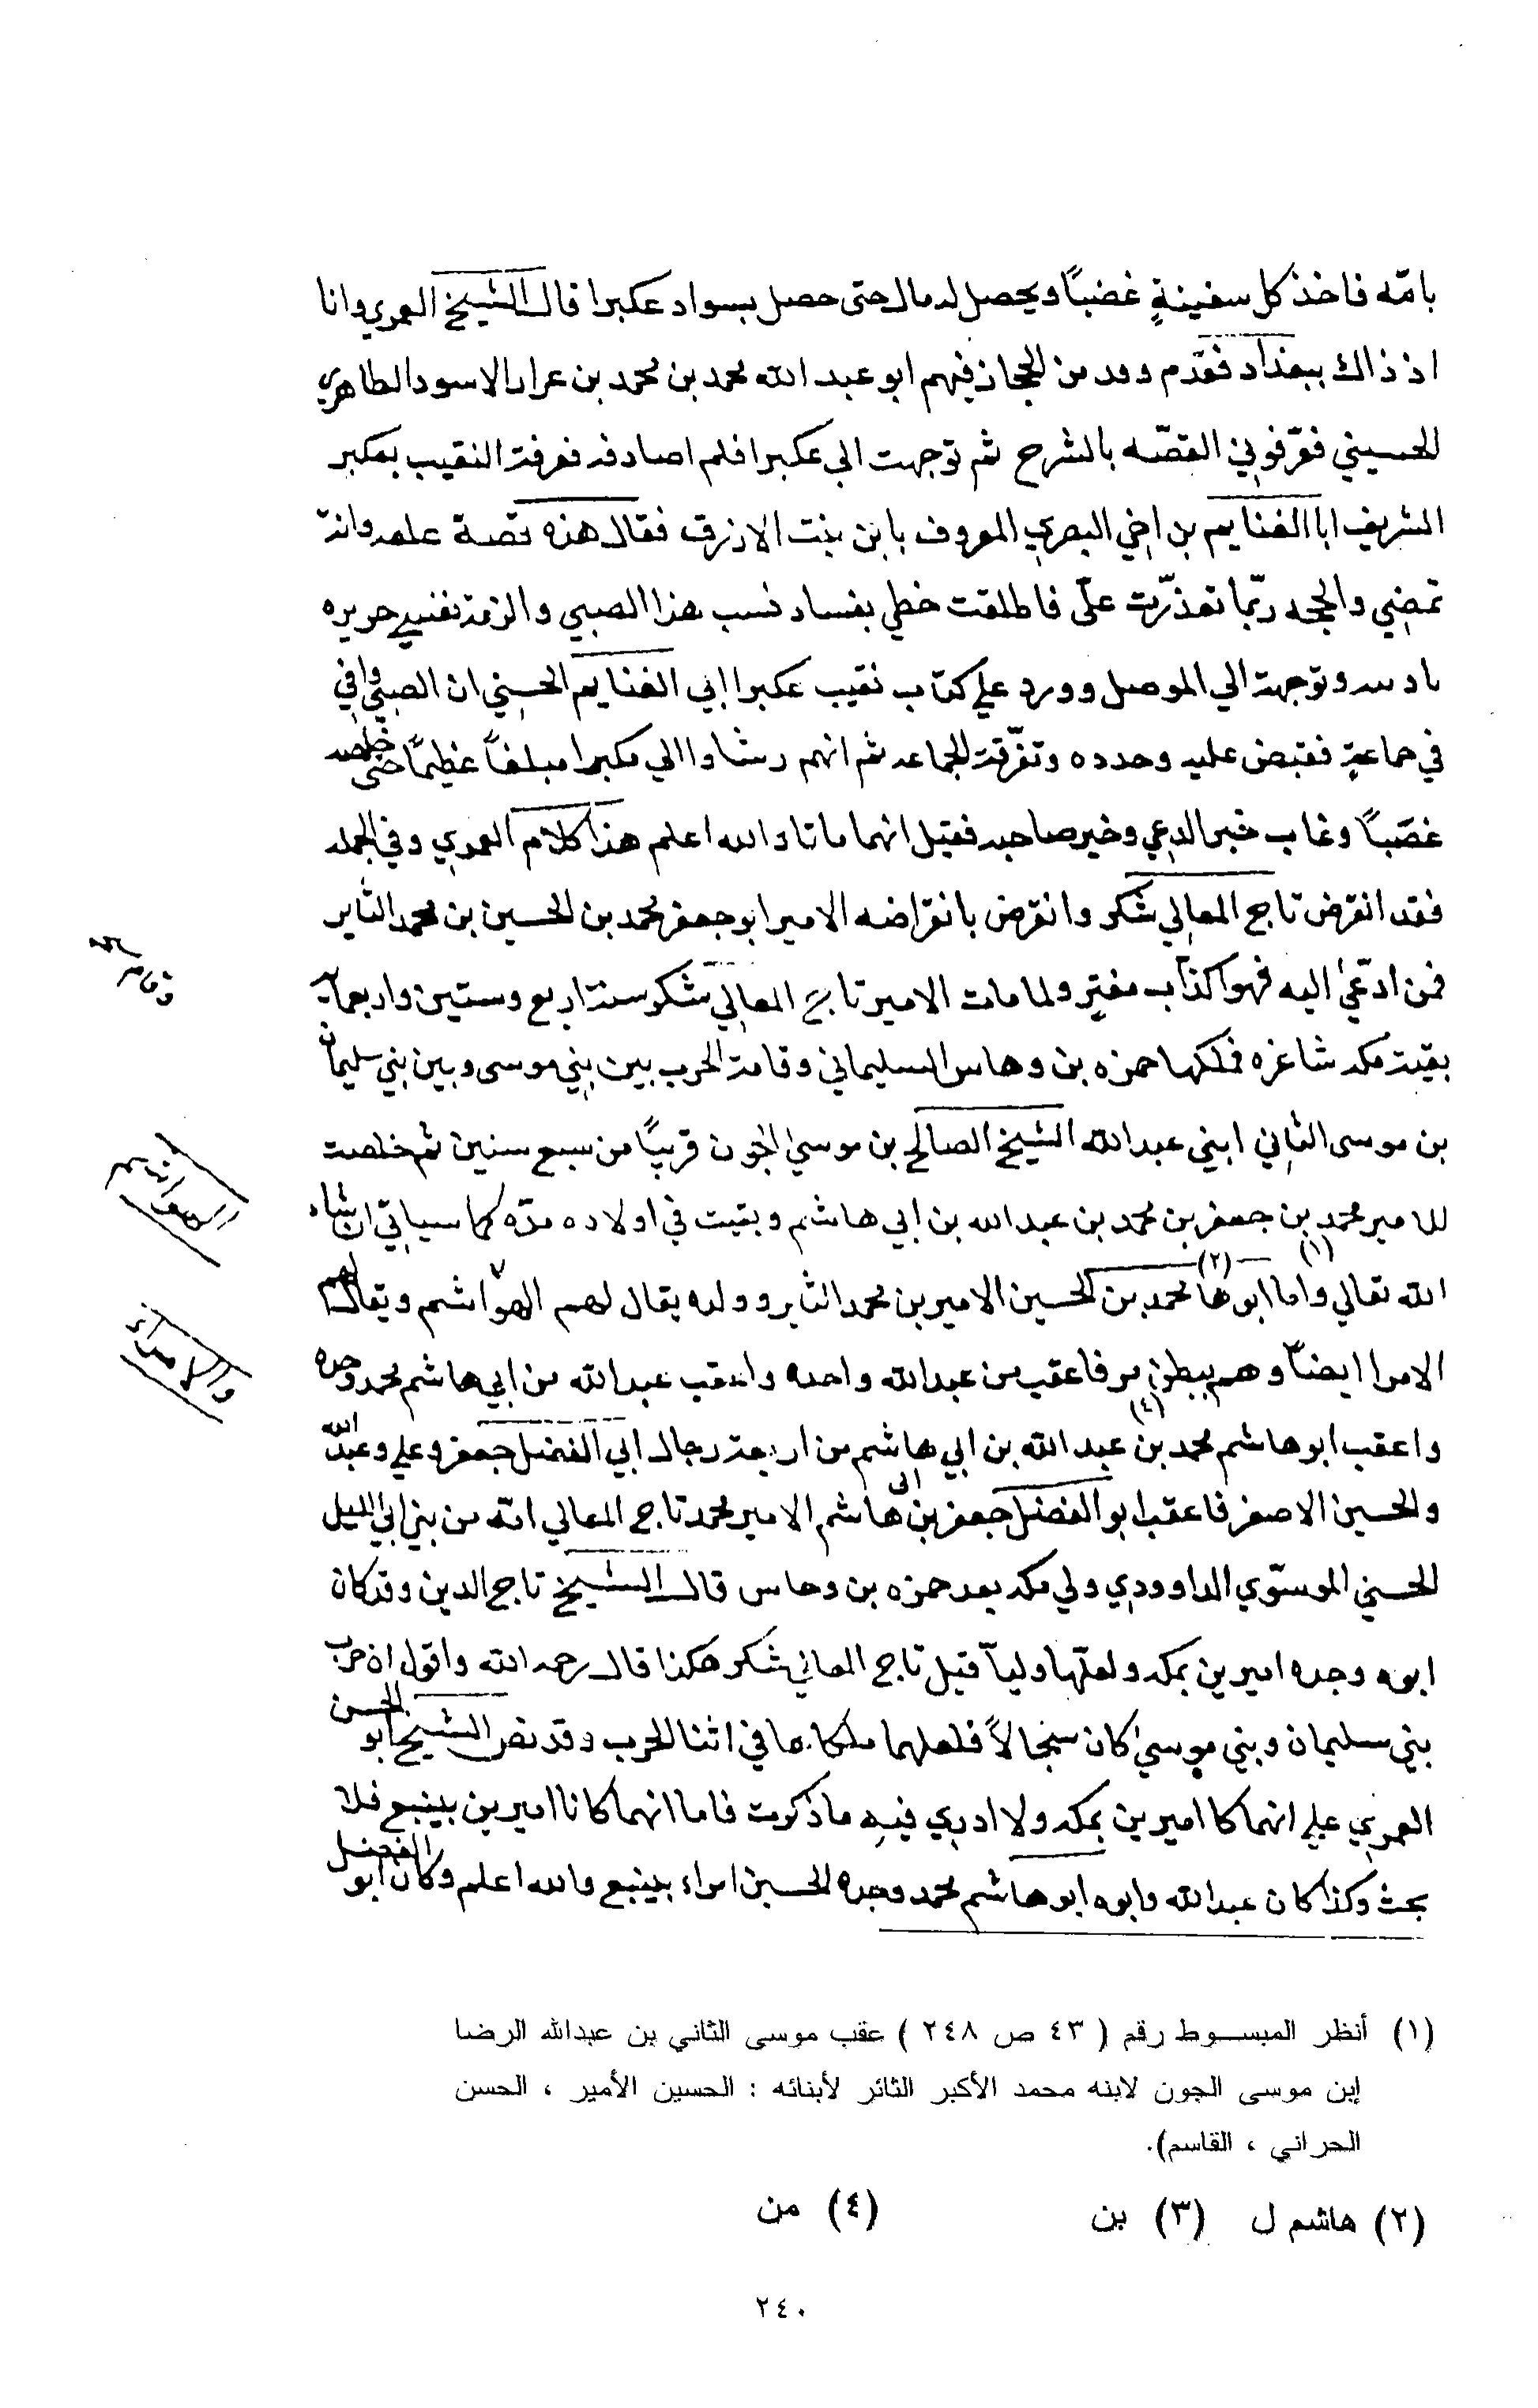 بامّه فاخذ كل سفينةٍ غضباً ويحصل له مال حتى حصل بسواد عكبرا قال الشيخ العمري وانا
اذ ذاك ببغداد فقدّم وفد من الحجاز فيهم ابو عبد الله محمد بن محمد بن عرار الاسود الطاهري
الحسيني فعرّفوني القصّه بالشرح ثم توجهت الى عكبرا فلم اصادفه فعرفت النقيب بعكبر
الشريف ابا الغنايم بن اخي البصري المعروف بابن بنت الازرق فقال هذه قصة علمه وانت
تمضي والحجه ربّما تعذّرت علّى فاطلقت خطي بفساد نسب هذا الصبي والزمت نفسي جريره
وتوجهت الي الموصل وورد علي كتاب نقيب عكبرا ابي الغنايم الحسيني ان الصبي وافي
في جماعةٍ فقبض عليه وحدده وتفّرقت الجماعه ثم انهم رشاوا الي عكبرا مبلغاً عظيماً حتى خلصه
غصباً وغاب خبر الدعي وخبر صاحبه فقيل انهما ماتا والله اعلم هذا كلام العمري وفي الجمله
فقد انقرض تاج المعالي شكر وانقرض بانقراضه الامير ابو جعفر محمد بن الحسين بن محمد الثاير
فمن ادّعى اليه فهو كذاب مفترٍ ولما مات الامير تاج المعالي شكر سنة اربع وستين واربعمأية
بقيت مكه شاغره فملكها حمزه بن وهاس السليماني وقامت الحرب بين بني موسى وبين بني سليمان
بن موسى الثاني ابني عبدالله الشيخ الصالح بن موسى الجون قريباً من سبع سنين ثم خلصت
للامير محمد بن جعفر بن محمد بن عبد الله بن ابي هاشم وبقيت في اولاده مدّه كما سياتي ان شاء
(١)
الله تعالي واما ابو ها (٢) محمد بن الحسين الامير بن محمد الثاير وولده يقال لهم الهواشم ويقال لهم
الامرا ايضاً وهم ببطن مر فاعقب من عبدالله وحده واعقب عبدالله من ابي هاشم محمد وحده
واعقب ابو هاشم محمد بن (٤) عبد الله بن ابي هاشم من اربعة رجال ابي الفضل جعفر وعلي وعبد الله
والحسين الاصغر فاعقب ابو الفضل جعفر بن ابى هاشم الامير محمد تاج المعالي امّه من بني ابي الليل
الحسني الموسوّي الداوودي ولي مكه بعد حمزه بن وهاس قال الشيخ تاج الدين وقد كان
ابوه وجده اميرين بمكه ولعلّها ولياّ قبل تاج المعالي شكر هكذا قال رحمه الله واقول ان حرب
بني سليمان وبني موسى كان سجالاً فلعلهما ملكاها في اثنا الحرب وقد نص الشيخ ابو الحسن
العمري علي انهما كا اميرين بمكه ولا ادري فيه ما ذكرت فاما انهما كانا اميرين بينبع فلا
بحث وكذا كان عبدالله وابوه ابو هاشم محمد وجده الحسين امراء بينبع والله اعلم وكان ابو الفضل
الهواشم
والامراء
(١) أنظر المبسوط رقم ( ٤٣ ص ٢٤٨ ) عقب موسى الثاني بن عبدالله الرضا
إبن موسى الجون لابنه محمد الأكبر الثائر لأبنائه : الحسين الأمير ، الحسن
الحراني ، القاسم).
(٢) هاشم ل (٣) بن (٤) من
٢٤٠